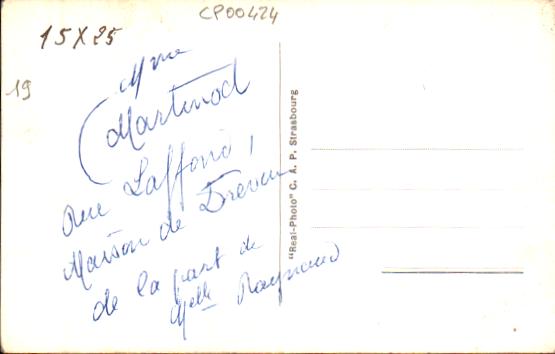 CP00424
15X25
19
Mme
Martinod
Rue Laffond,
Maison de
de la part de
Melle Raynaud
"Real-Photo" C. A. P. Strasbourg